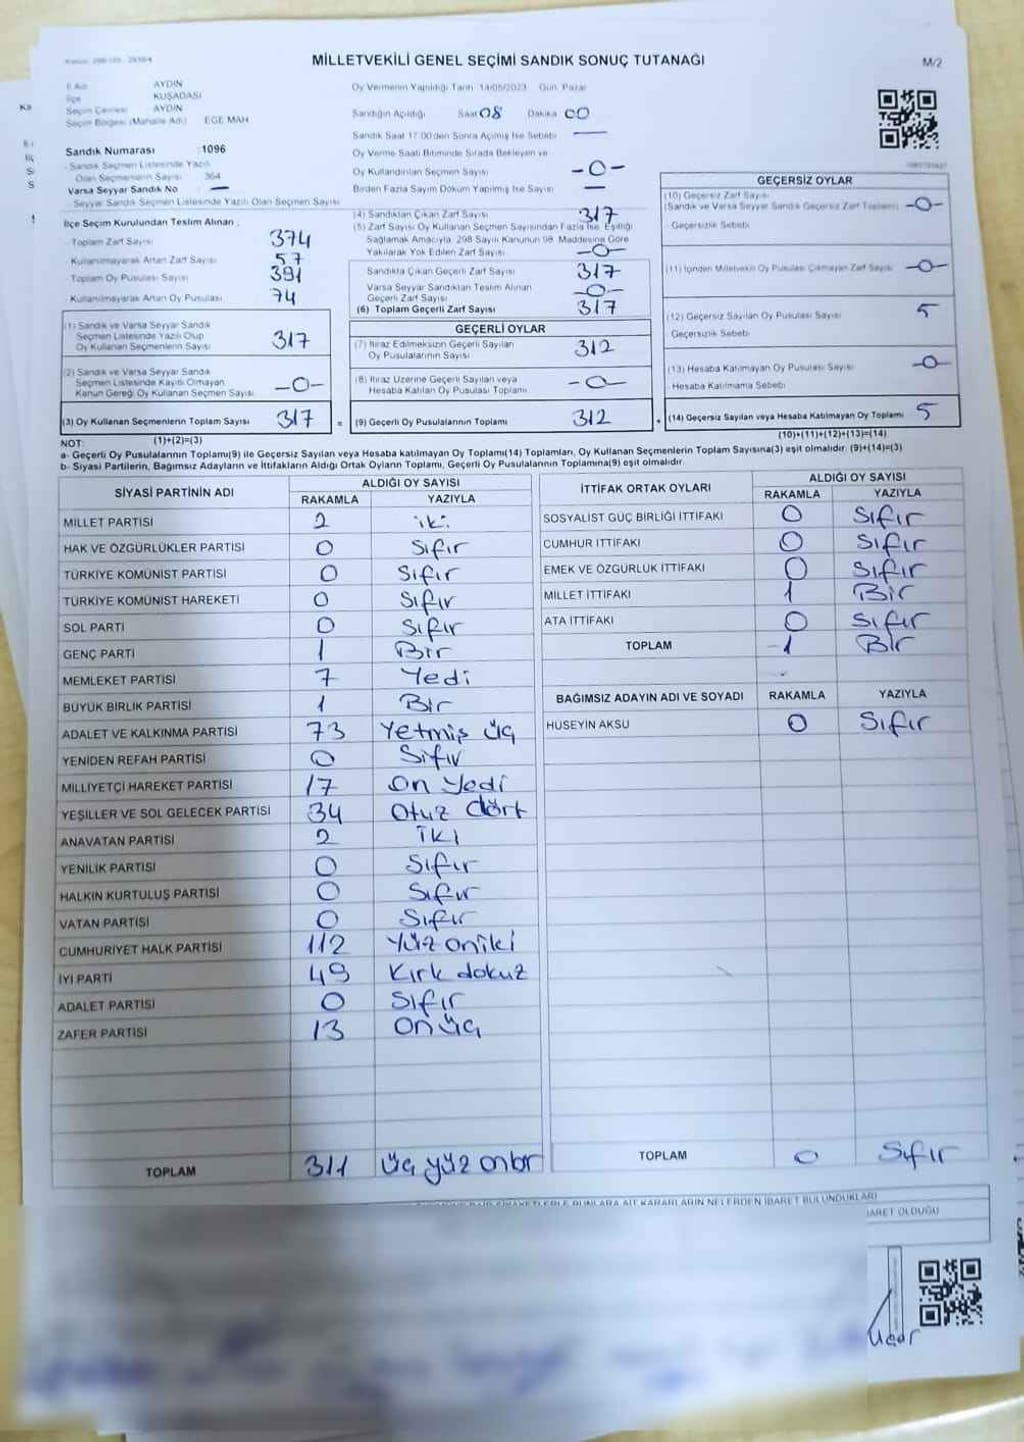 MİLLETVEKİLİ GENEL SEÇİMİ SANDIK SONUÇ TUTANAĞI
M/2
İl Adı AYDIN
İlçe KUŞADASI
Seçim Çevresi AYDIN
Seçim Bölgesi (Mahalle Adı) EGE MAH
Sandık Numarası :1096
Sandık Seçmen Listesinde Yazılı
Olan Seçmenlerin Sayısı 364
Varsa Seyyar Sandık No —
Seyyar Sandık Seçmen Listesinde Yazılı Olan Seçmen Sayısı
İlçe Seçim Kurulundan Teslim Alınan :
- Toplam Zarf Sayısı 374
Kullanılmayarak Artan Zarf Sayısı 57
- Toplam Oy Pusulası Sayısı 391
Kullanılmayarak Artan Oy Pusulası 74
(1) Sandık ve Varsa Seyyar Sandık
Seçmen Listesinde Yazılı Olup
Oy Kullanan Seçmenlerin Sayısı 317
(2) Sandık ve Varsa Seyyar Sandık
Seçmen Listesinde Kayıtlı Olmayan
Kanun Gereği Oy Kullanan Seçmen Sayısı -0-
(3) Oy Kullanan Seçmenlerin Toplam Sayısı 317
Oy Vermenin Yapıldığı Tarih 14/05/2023 Gün Pazar
Sandığın Açıldığı Saat 08 Dakika 00
Sandık Saat 17:00'den Sonra Açılmış İse Sebebi —
Oy Verme Saati Bitiminde Sırada Bekleyen ve
Oy Kullandırılan Seçmen Sayısı -0-
Birden Fazla Sayım Döküm Yapılmış İse Sayısı —
(4) Sandıktan Çıkan Zarf Sayısı 317
(5) Zarf Sayısı Oy Kullanan Seçmen Sayısından Fazla İse, Eşitliği
Sağlamak Amacıyla, 298 Sayılı Kanunun 98. Maddesine Göre
Yakılarak Yok Edilen Zarf Sayısı -0-
Sandıkta Çıkan Geçerli Zarf Sayısı 317
Varsa Seyyar Sandıktan Teslim Alınan
Geçerli Zarf Sayısı -0-
(6) Toplam Geçerli Zarf Sayısı 317
GEÇERLİ OYLAR
(7) İtiraz Edilmeksizin Geçerli Sayılan
Oy Pusulalarının Sayısı 312
(8) İtiraz Üzerine Geçerli Sayılan veya
Hesaba Katılan Oy Pusulası Toplamı -0-
= (9) Geçerli Oy Pusulalarının Toplamı 312
GEÇERSİZ OYLAR
(10) Geçersiz Zarf Sayısı
(Sandık ve Varsa Seyyar Sandık Geçersiz Zarf Toplamı) -0-
Geçersizlik Sebebi
(11) İçinden Milletvekili Oy Pusulası Çıkmayan Zarf Sayısı -0-
(12) Geçersiz Sayılan Oy Pusulası Sayısı 5
Geçersizlik Sebebi
(13) Hesaba Katılmayan Oy Pusulası Sayısı -0-
Hesaba Katılmama Sebebi
+ (14) Geçersiz Sayılan veya Hesaba Katılmayan Oy Toplamı 5
NOT: (1)+(2)=(3) (10)+(11)+(12)+(13)=(14)
a- Geçerli Oy Pusulalarının Toplamı(9) ile Geçersiz Sayılan veya Hesaba katılmayan Oy Toplamı(14) Toplamları, Oy Kullanan Seçmenlerin Toplam Sayısına(3) eşit olmalıdır. (9)+(14)=(3)
b- Siyasi Partilerin, Bağımsız Adayların ve İttifakların Aldığı Ortak Oyların Toplamı, Geçerli Oy Pusulalarının Toplamına(9) eşit olmalıdır.
SİYASİ PARTİNİN ADI ALDIĞI OY SAYISI
RAKAMLA YAZIYLA
MİLLET PARTİSİ 2 iki
HAK VE ÖZGÜRLÜKLER PARTİSİ 0 Sıfır
TÜRKİYE KOMÜNİST PARTİSİ 0 Sıfır
TÜRKİYE KOMÜNİST HAREKETİ 0 Sıfır
SOL PARTİ 0 Sıfır
GENÇ PARTİ 1 Bir
MEMLEKET PARTİSİ 7 Yedi
BÜYÜK BİRLİK PARTİSİ 1 Bir
ADALET VE KALKINMA PARTİSİ 73 Yetmiş üç
YENİDEN REFAH PARTİSİ 0 Sıfır
MİLLİYETÇİ HAREKET PARTİSİ 17 On Yedi
YEŞİLLER VE SOL GELECEK PARTİSİ 34 Otuz dört
ANAVATAN PARTİSİ 2 İki
YENİLİK PARTİSİ 0 Sıfır
HALKIN KURTULUŞ PARTİSİ 0 Sıfır
VATAN PARTİSİ 0 Sıfır
CUMHURİYET HALK PARTİSİ 112 Yüz oniki
İYİ PARTİ 49 Kırk dokuz
ADALET PARTİSİ 0 Sıfır
ZAFER PARTİSİ 13 Onüç
TOPLAM 311 Üç yüz onbir
İTTİFAK ORTAK OYLARI ALDIĞI OY SAYISI
RAKAMLA YAZIYLA
SOSYALİST GÜÇ BİRLİĞİ İTTİFAKI 0 Sıfır
CUMHUR İTTİFAKI 0 Sıfır
EMEK VE ÖZGÜRLÜK İTTİFAKI 0 Sıfır
MİLLET İTTİFAKI 1 Bir
ATA İTTİFAKI 0 Sıfır
TOPLAM 1 Bir
BAĞIMSIZ ADAYIN ADI VE SOYADI RAKAMLA YAZIYLA
HÜSEYİN AKSU 0 Sıfır
TOPLAM 0 Sıfır
BUNLARA AİT KARARLARIN NELERDEN İBARET BULUNDUKLARI
OLDUĞU